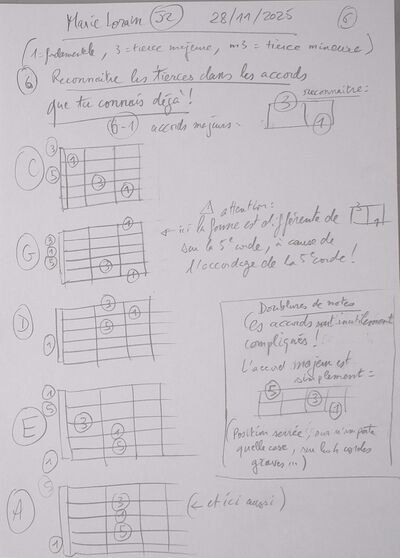 Marie Lorain 52 28/11/2025 6
(1=fondamentale, 3=tierce majeure, m3=tierce mineure)
6 Reconnaître les tierces dans les accords
que tu connais déjà !
reconnaître :
6-1 accords majeurs -
3
1
C
3
5
1
3
1
⚠ attention :
← ici la forme est différente de 3 1
sur la 5e corde, à cause de
l'accordage de la 5e corde !
G
3
1
5
1
3
1
D
1
3
5
1
Doublures de notes
Ces accords sont inutilement
compliqués !
L'accord majeur est
simplement =
5
3
1
(Position serrée, sur n'importe
quelle case, sur les 4 cordes
graves...)
E
1
5
3
1
5
1
A
5
1
3
1
5
(← et ici aussi)